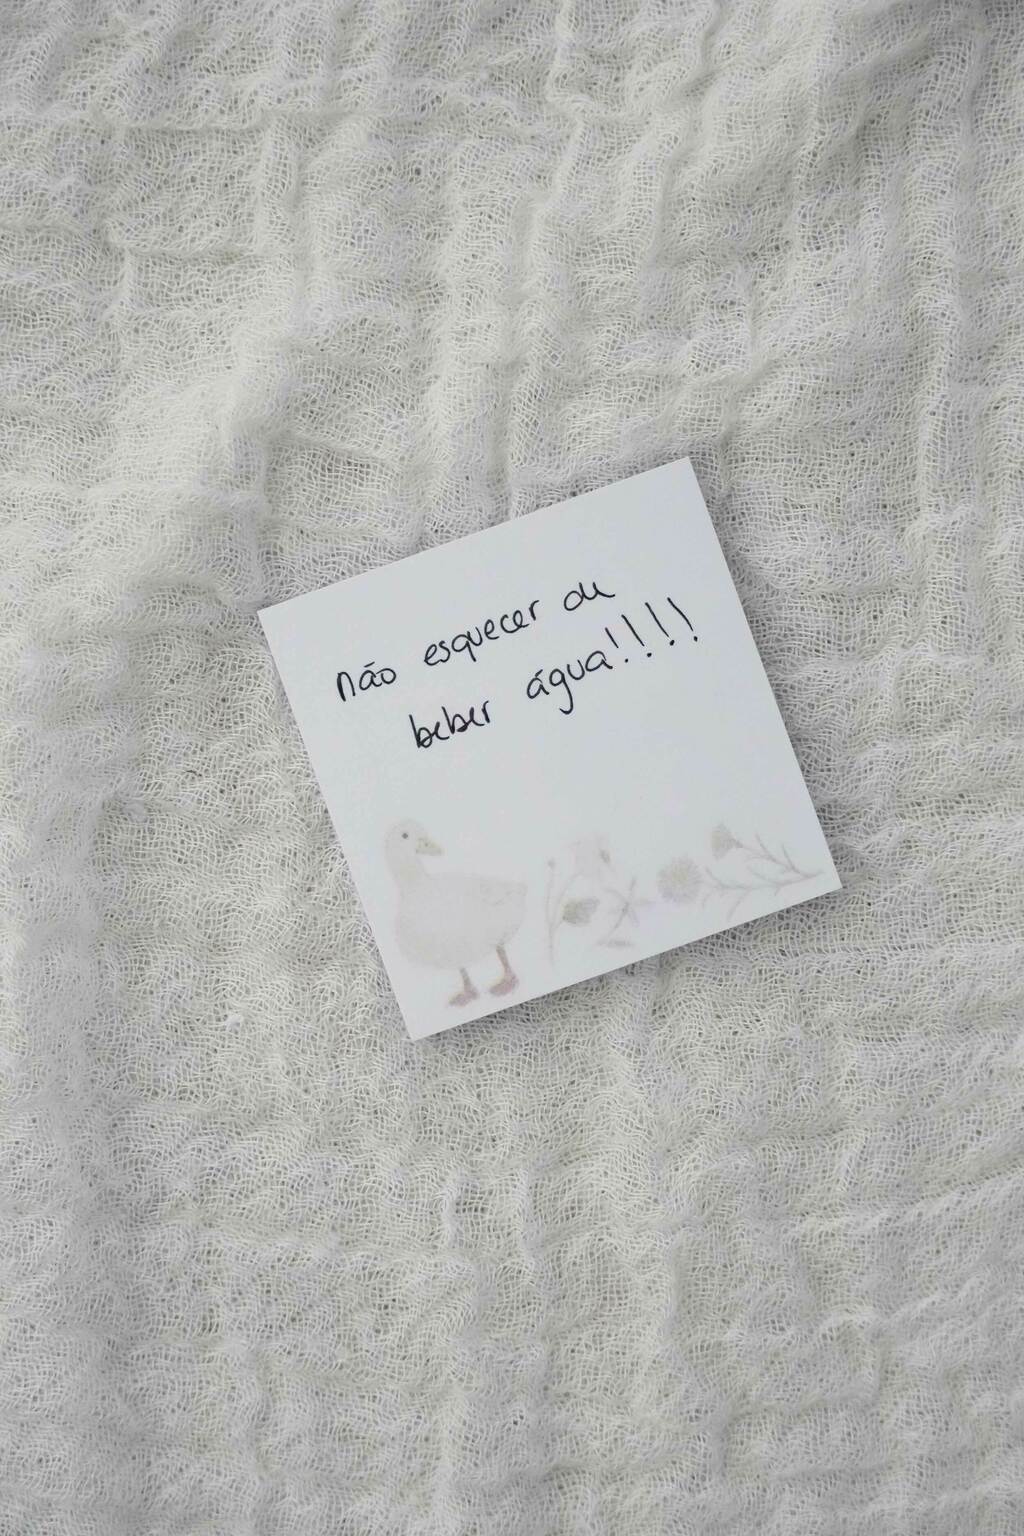 não esquecer de
beber água!!!!